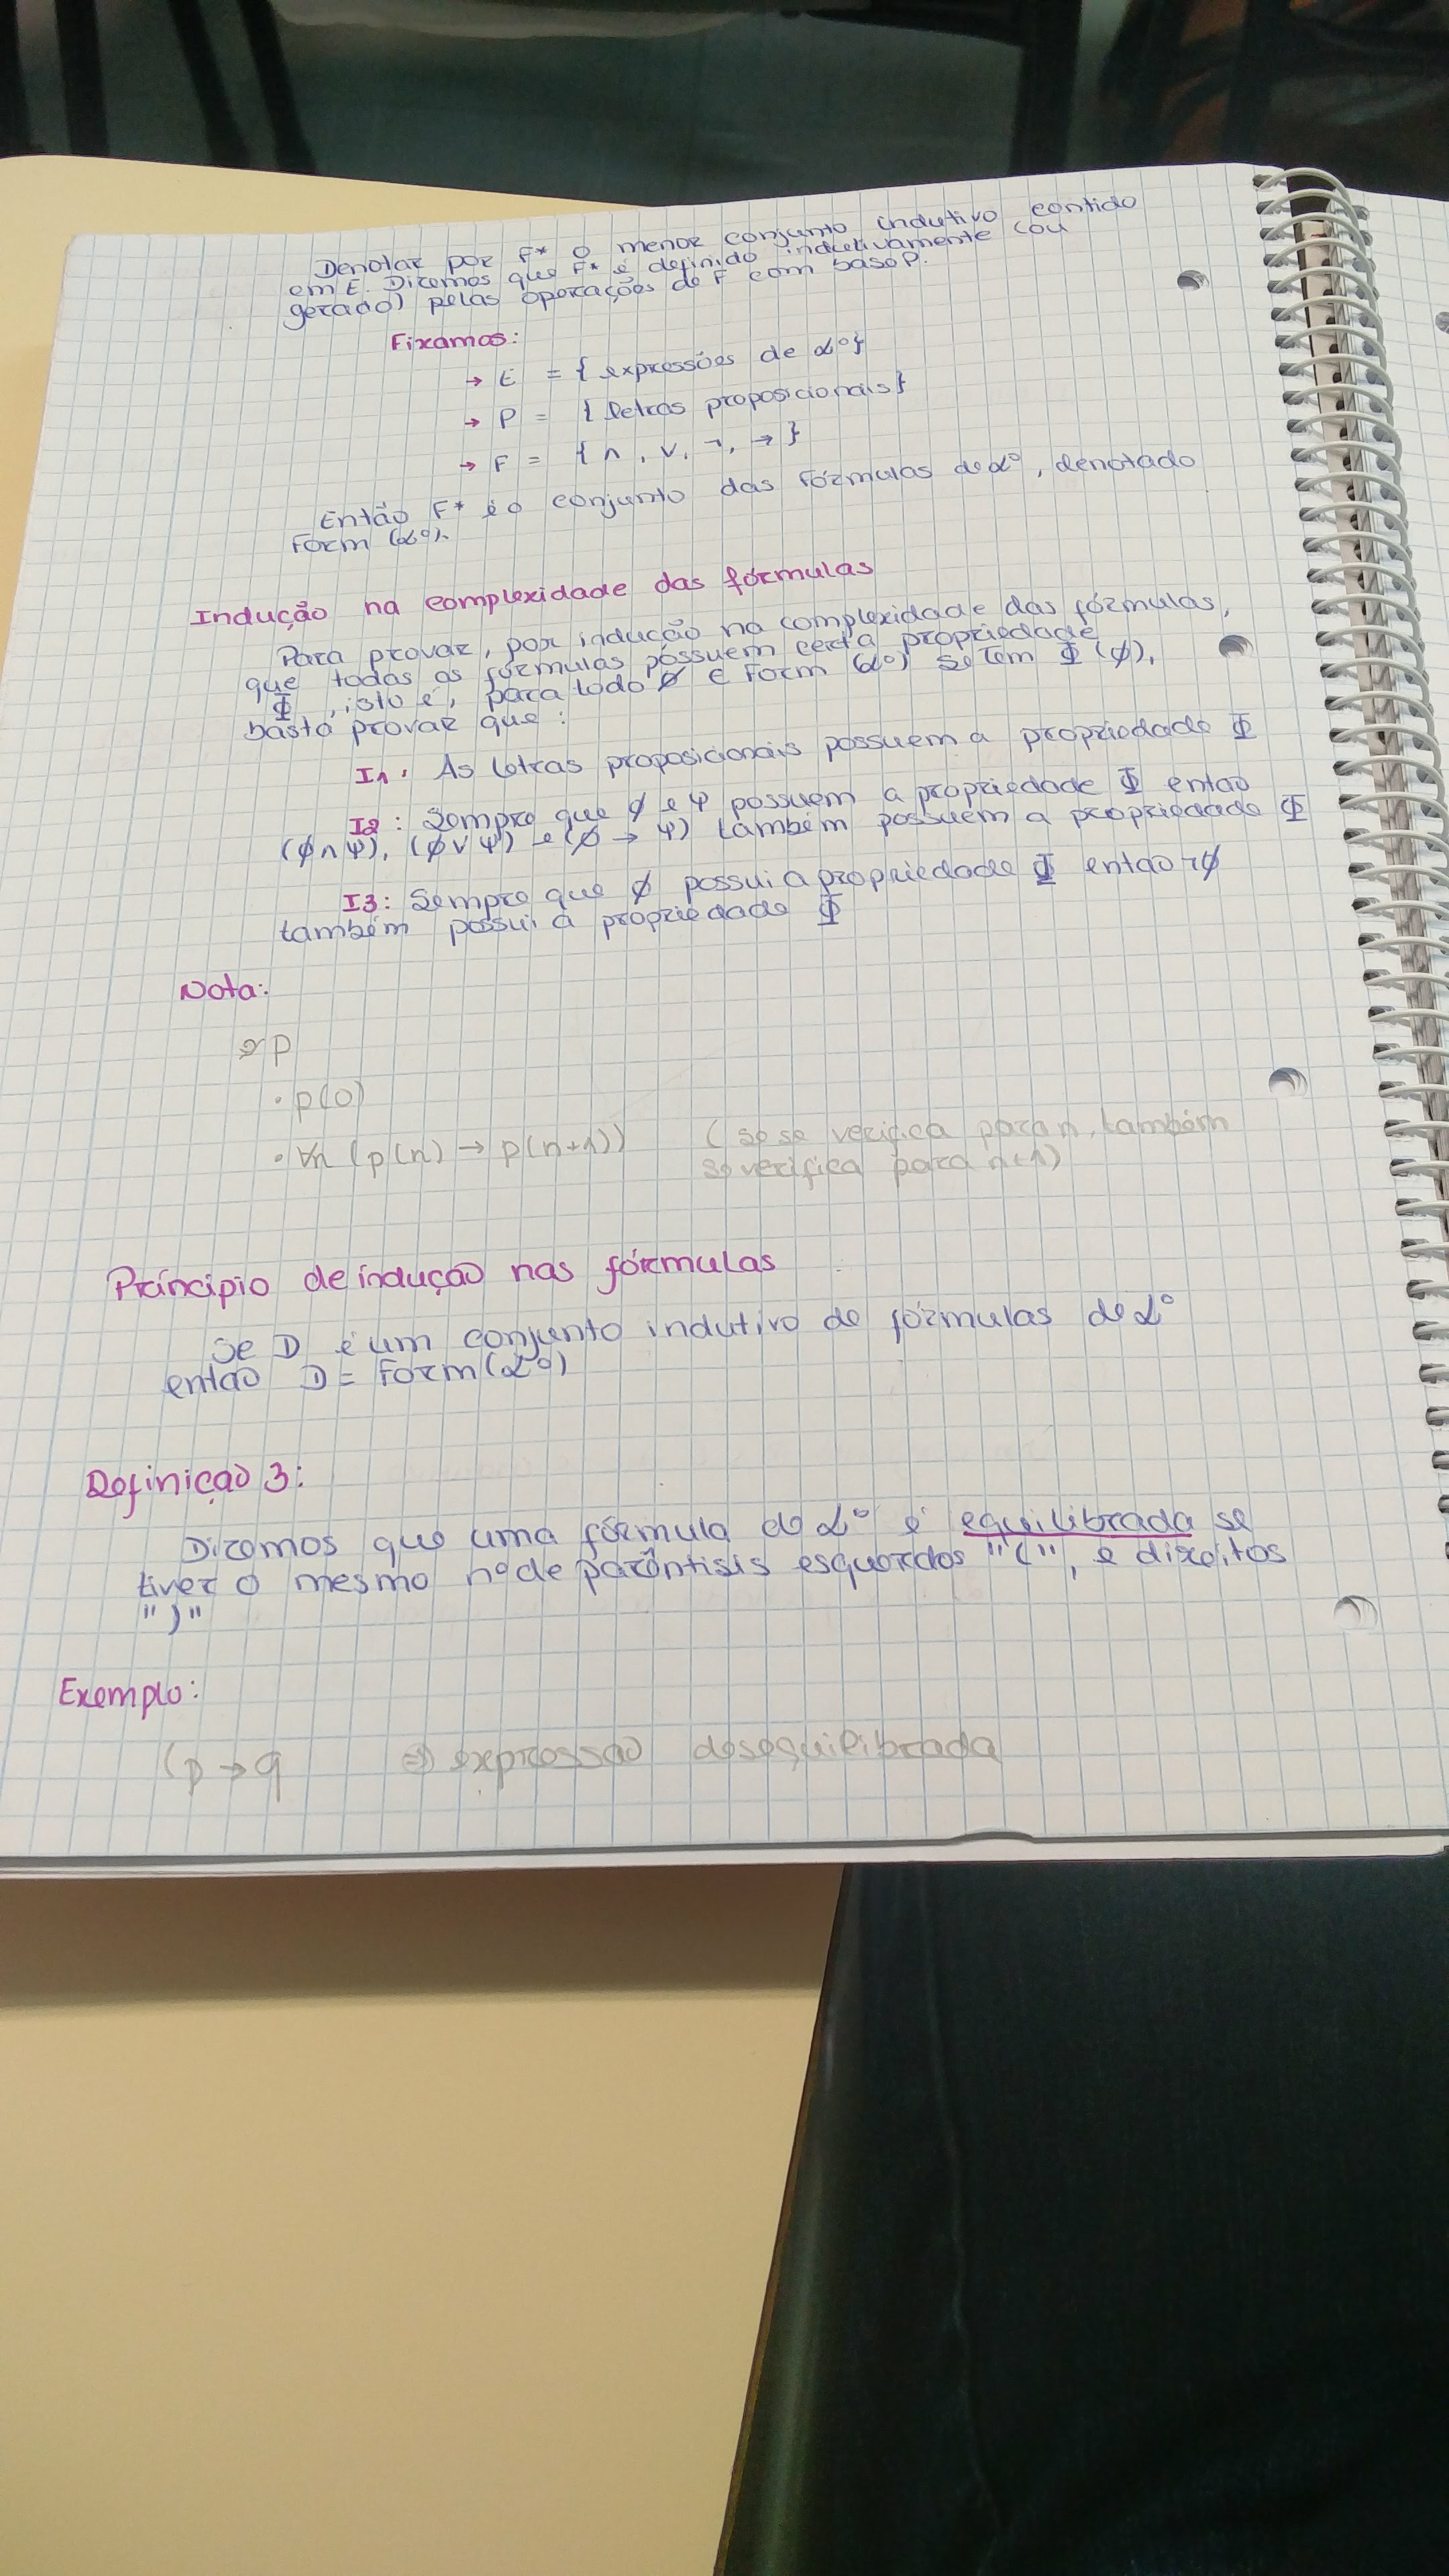 Denotar por F* o menor conjunto indutivo contido
em E. Diremos que F* é definido indutivamente (ou
gerado) pelas operações de F com base P.
Fixamos:
→ E = { expressões de ℒ⁰}
→ P = { letras proposicionais}
→ F = { ∧, ∨, ¬, → }
Então F* é o conjunto das fórmulas de ℒ⁰, denotado
Form (ℒ⁰).
Indução na complexidade das fórmulas
Para provar, por indução na complexidade das fórmulas,
que todas as fórmulas possuem certa propriedade
Φ, isto é, para todo ϕ ∈ Form (ℒ⁰) se tem Φ(ϕ),
basta provar que:
I1: As letras proposicionais possuem a propriedade Φ
I2: Sempre que ϕ e ψ possuem a propriedade Φ entao
(ϕ∧ψ), (ϕ∨ψ) e (ϕ → ψ) também possuem a propriedade Φ
I3: Sempre que ϕ possui a propriedade Φ entao ¬ϕ
também possui a propriedade Φ
Nota:
P
· p(0)
· ∀n (p(n) → p(n+1)) (se se verifica para n, também
se verifica para n+1)
Princípio de indução nas fórmulas
Se D é um conjunto indutivo de fórmulas de ℒ⁰
entao D = Form(ℒ⁰)
Definiçao 3:
Diremos que uma fórmula de ℒ⁰ é equilibrada se
tiver o mesmo nº de parêntisis esquerdos "(", e direitos
")"
Exemplo:
(p → q ⇒ expressao desequilibrada